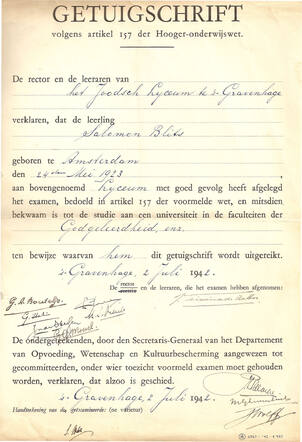 GETUIGSCHRIFT
volgens artikel 157 der Hooger-onderwijswet.
De rector en de leeraren van
het Joodsch Lyceum te 's-Gravenhage
verklaren, dat de leerling
Salomon Blits
geboren te Amsterdam
den 24sten Mei 1923
aan bovengenoemd Lyceum met goed gevolg heeft afgelegd
het examen, bedoeld in artikel 157 der voormelde wet, en mitsdien
bekwaam is tot de studie aan een universiteit in de faculteiten der
Godgeleerdheid, enz.
ten bewijze waarvan hem dit getuigschrift wordt uitgereikt.
's-Gravenhage, 2 Juli 1942.
De rector en de leeraren, die het examen hebben afgenomen:
De ondergeteekenden, door den Secretaris-Generaal van het Departement
van Opvoeding, Wetenschap en Kultuurbescherming aangewezen tot
gecommitteerden, onder wier toezicht voormeld examen moet gehouden
worden, verklaren, dat alzoo is geschied.
's-Gravenhage, 2 Juli 1942.
Handteekening van den geëxamineerde: